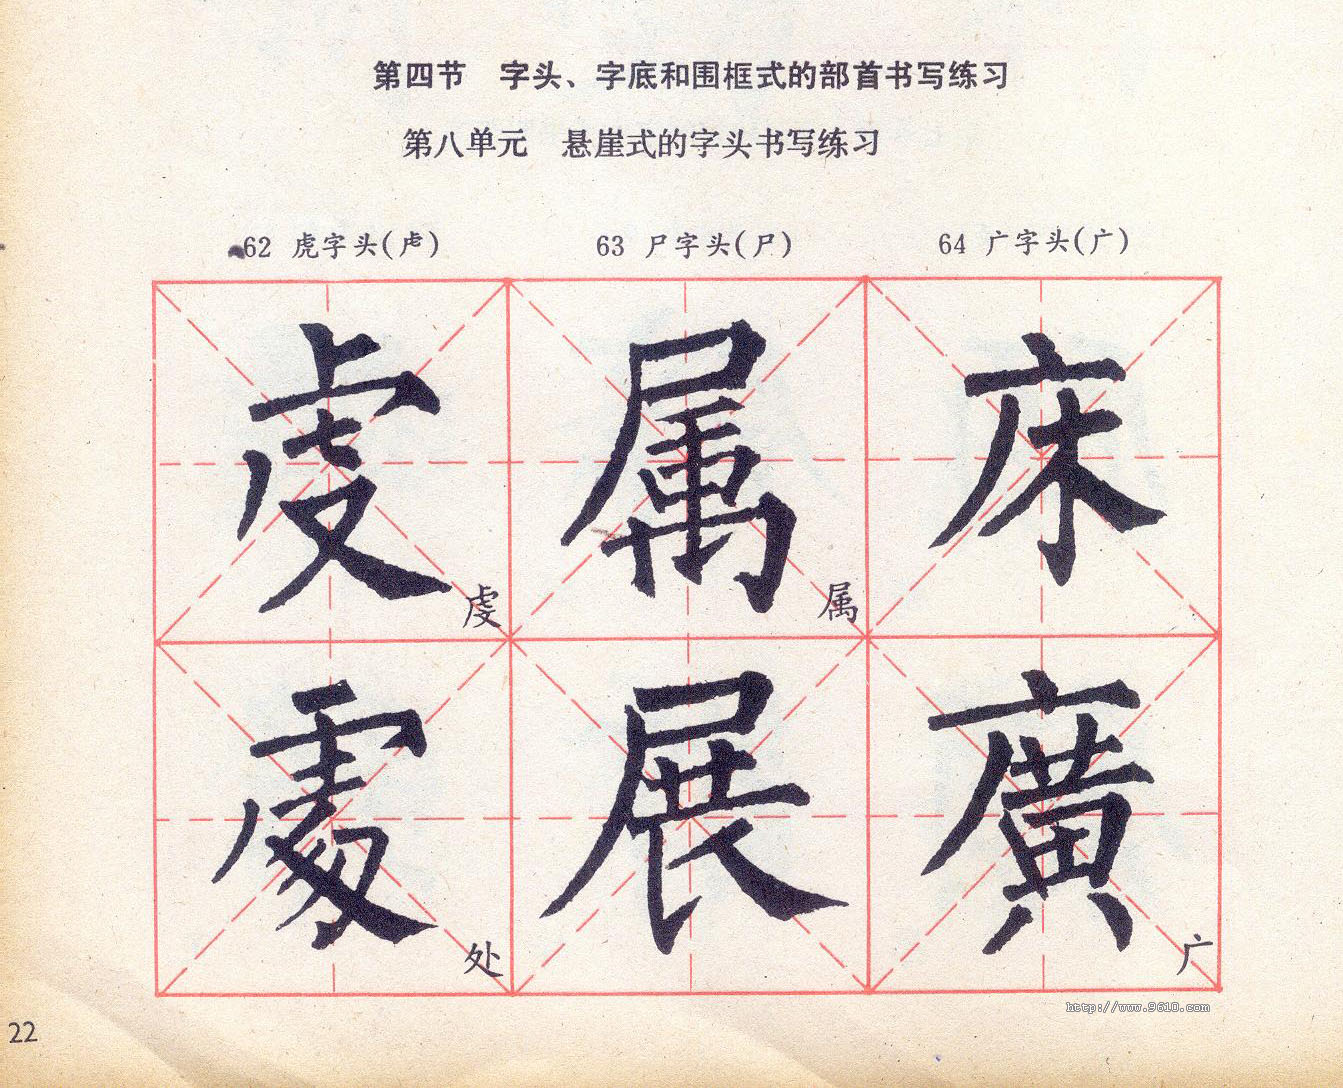 第四节　字头、字底和围框式的部首书写练习
第八单元　悬崖式的字头书写练习
62 虎字头(虍)　63 尸字头(尸)　64 广字头(广)
虔　属　床
虔　属
處　展　廣
处　广
http://www.9610.com
22